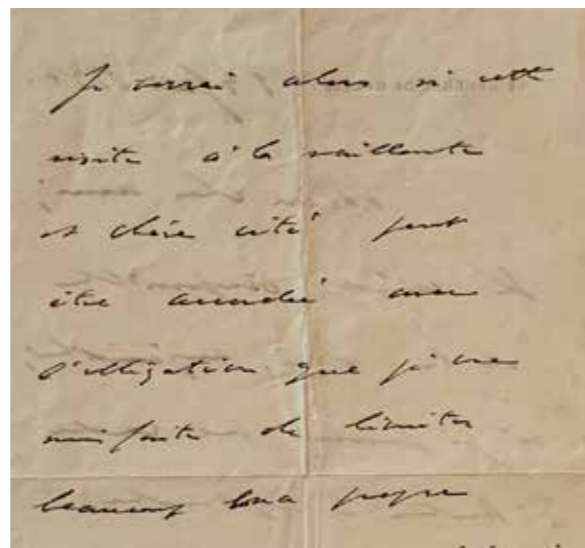 Je verrai alors si cette
visite à la vaillante
et chère cité peut
être accordée avec
l'obligation que je me
suis faite de limiter
beaucoup